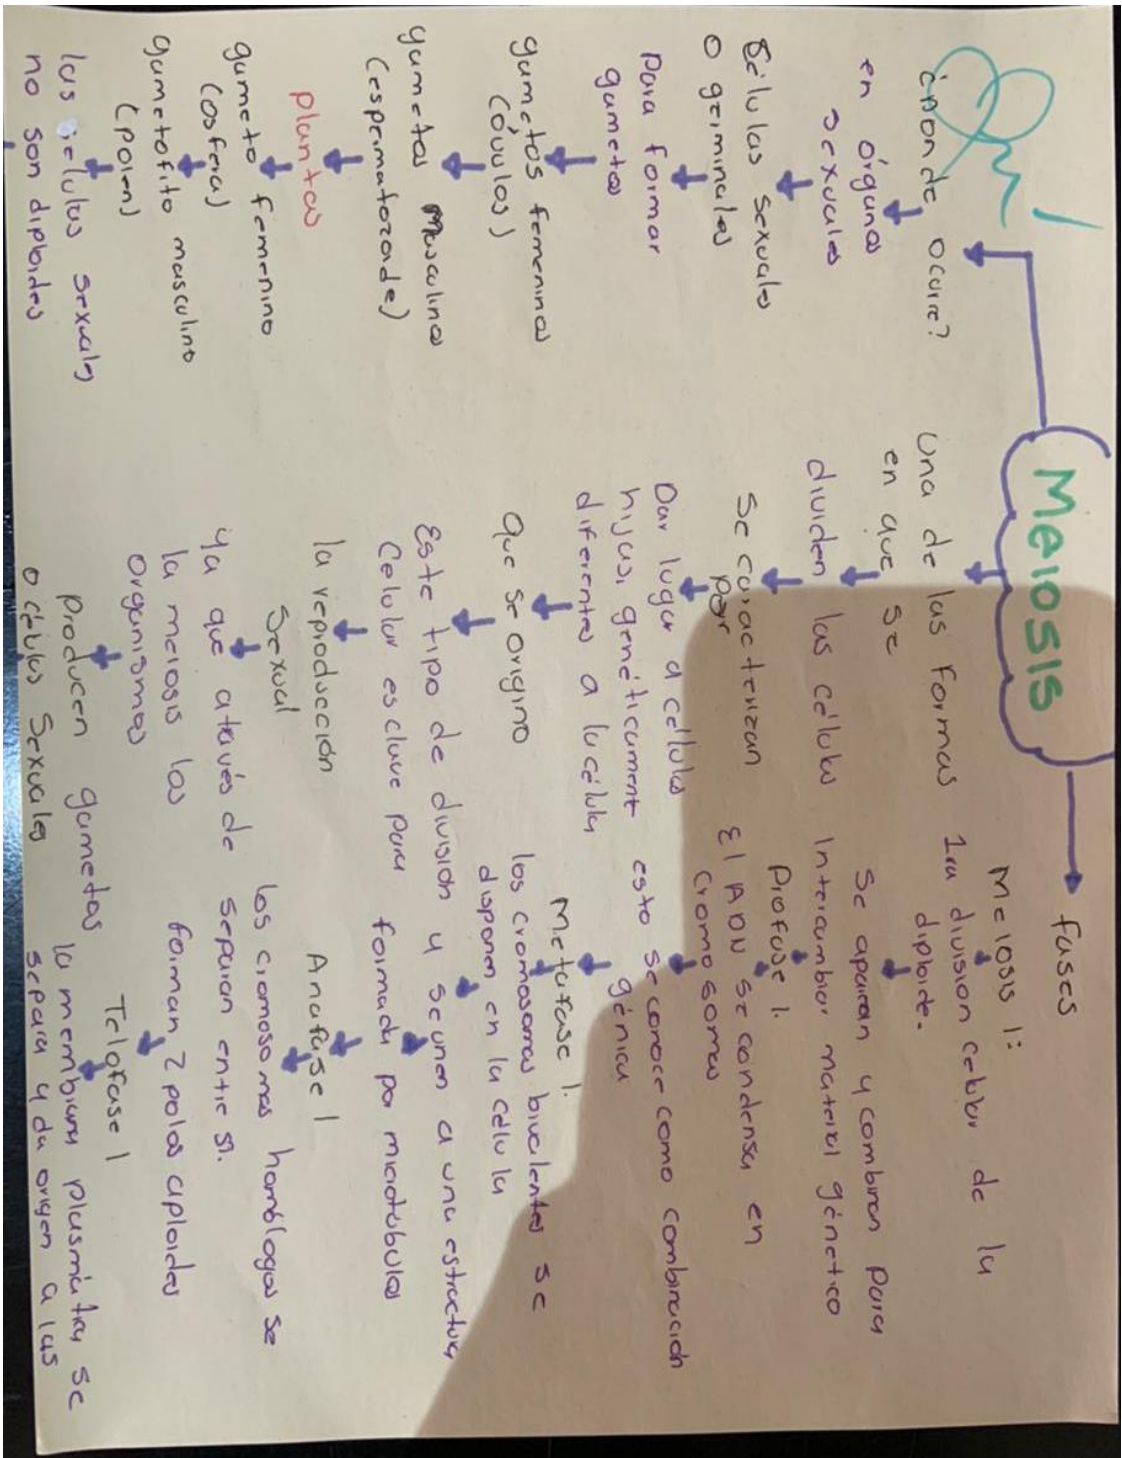 Meiosis
¿Donde ocurre?
en órganos
sexuales
Células sexuales
o germinales
Para formar
gametos
gametos femeninos
(óvulos)
gametos masculinos
(espermatozoide)
plantas
gameto femenino
(osfera)
gametofito masculino
(polen)
las células
no son diploides
Una de las formas
en que se
dividen las células
Se caracterizan
por
Dar lugar a células
hijas, genéticament
diferentes a la célula
que se origino
Este tipo de división
Celular es clave para
la reproducción
Sexual
Ya que através de
la meiosis los
Organismos
producen gametos
o células Sexuales
fases
Meiosis 1:
1ra division celular de la
diploide.
Se aparean y combinan para
Intercambiar material génetico
Profase 1.
El ADN se condensa en
Cromosomas
esto se conoce como combinación
génica
Metafase 1.
los cromosomas bivalentes se
disponen en la célula
y se unen a una estructura
formada por microtubulos
Anafase 1
los cromosomas homólogos se
separan entre si.
forman 2 polos aploides
Telofase 1
la membrana plasmática se
separa y da origen a las